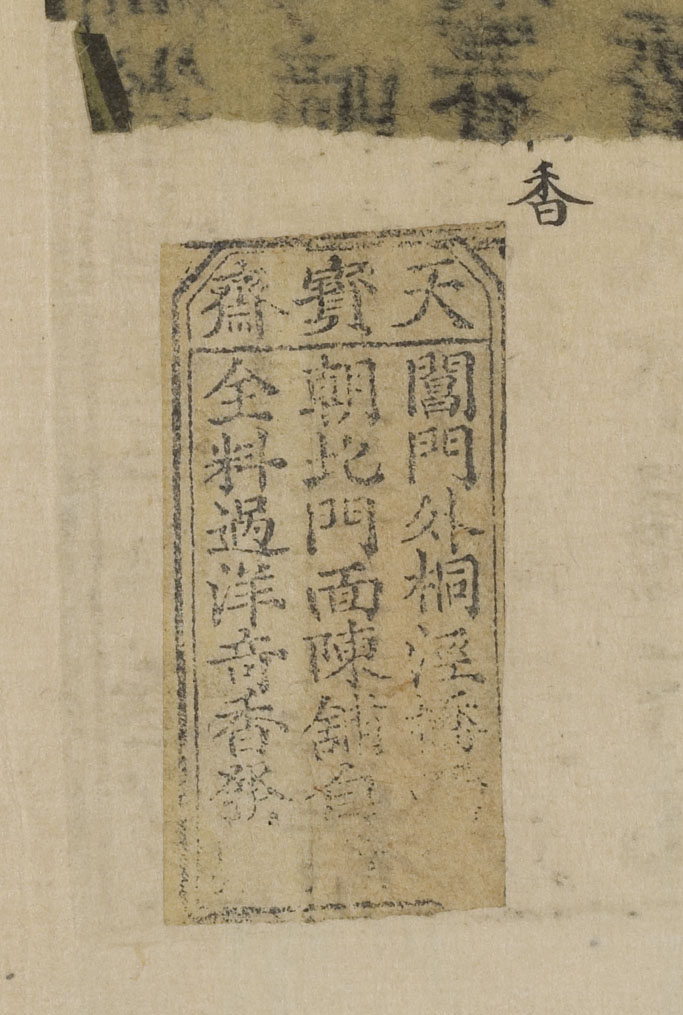 香
天寳齋
閶門外桐涇橋
朝北門面陳舖自
全料過洋奇香發